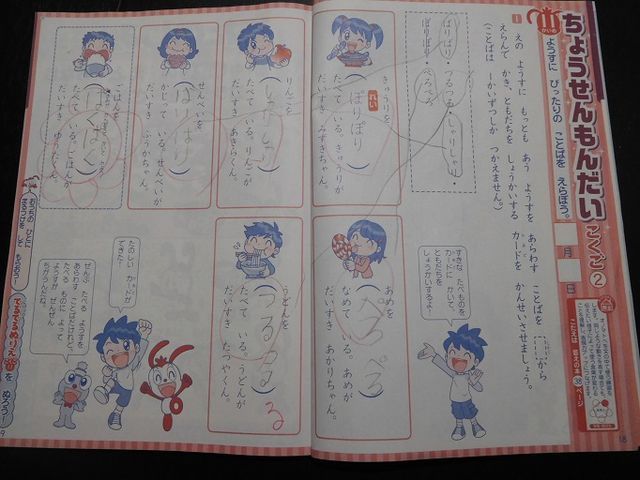 ちょうせんもんだい こくご②
ようすに ぴったりの ことばを えらぼう。
月 日
こたえは 答えの本 38 ページ
1 えの ようすに もっとも あう ようすを あらわす ことばを から
えらんで かき、ともだちを しょうかいする カードを かんせいさせましょう。
(ことばは 一かいずつしか つかえません。)
ぱりぱり・つるつる・しゃりしゃり・
ぽりぽり・ぺろぺろ・
きゅうりを
れい
(ぽりぽり)
たべて いる。きゅうりが
だいすき みずきちゃん。
りんごを
(しゃりしゃり)
たべて いる。りんごが
だいすき あきらくん。
せんべいを
(ぱりぱり)
かじって いる。せんべいが
だいすき ふうかちゃん。
ごはんを
(ぱくぱく)
たべて いる。ごはんが
だいすき ゆうたくん。
すきな たべものを
カードに かいて
ともだちを
しょうかいするよ!
あめを
(ぺろぺろ)
なめて いる。あめが
だいすき あかりちゃん。
うどんを
(つるつる)
たべて いる。うどんが
だいすき たつやくん。
る
たのしい カードが
できた!
ぜんぶ たべる ようすを
あらわす ことばだけれど、
たべる ものに よって
ようすが ぜんぜん
ちがうんだね。
を ぬろう!
18
9